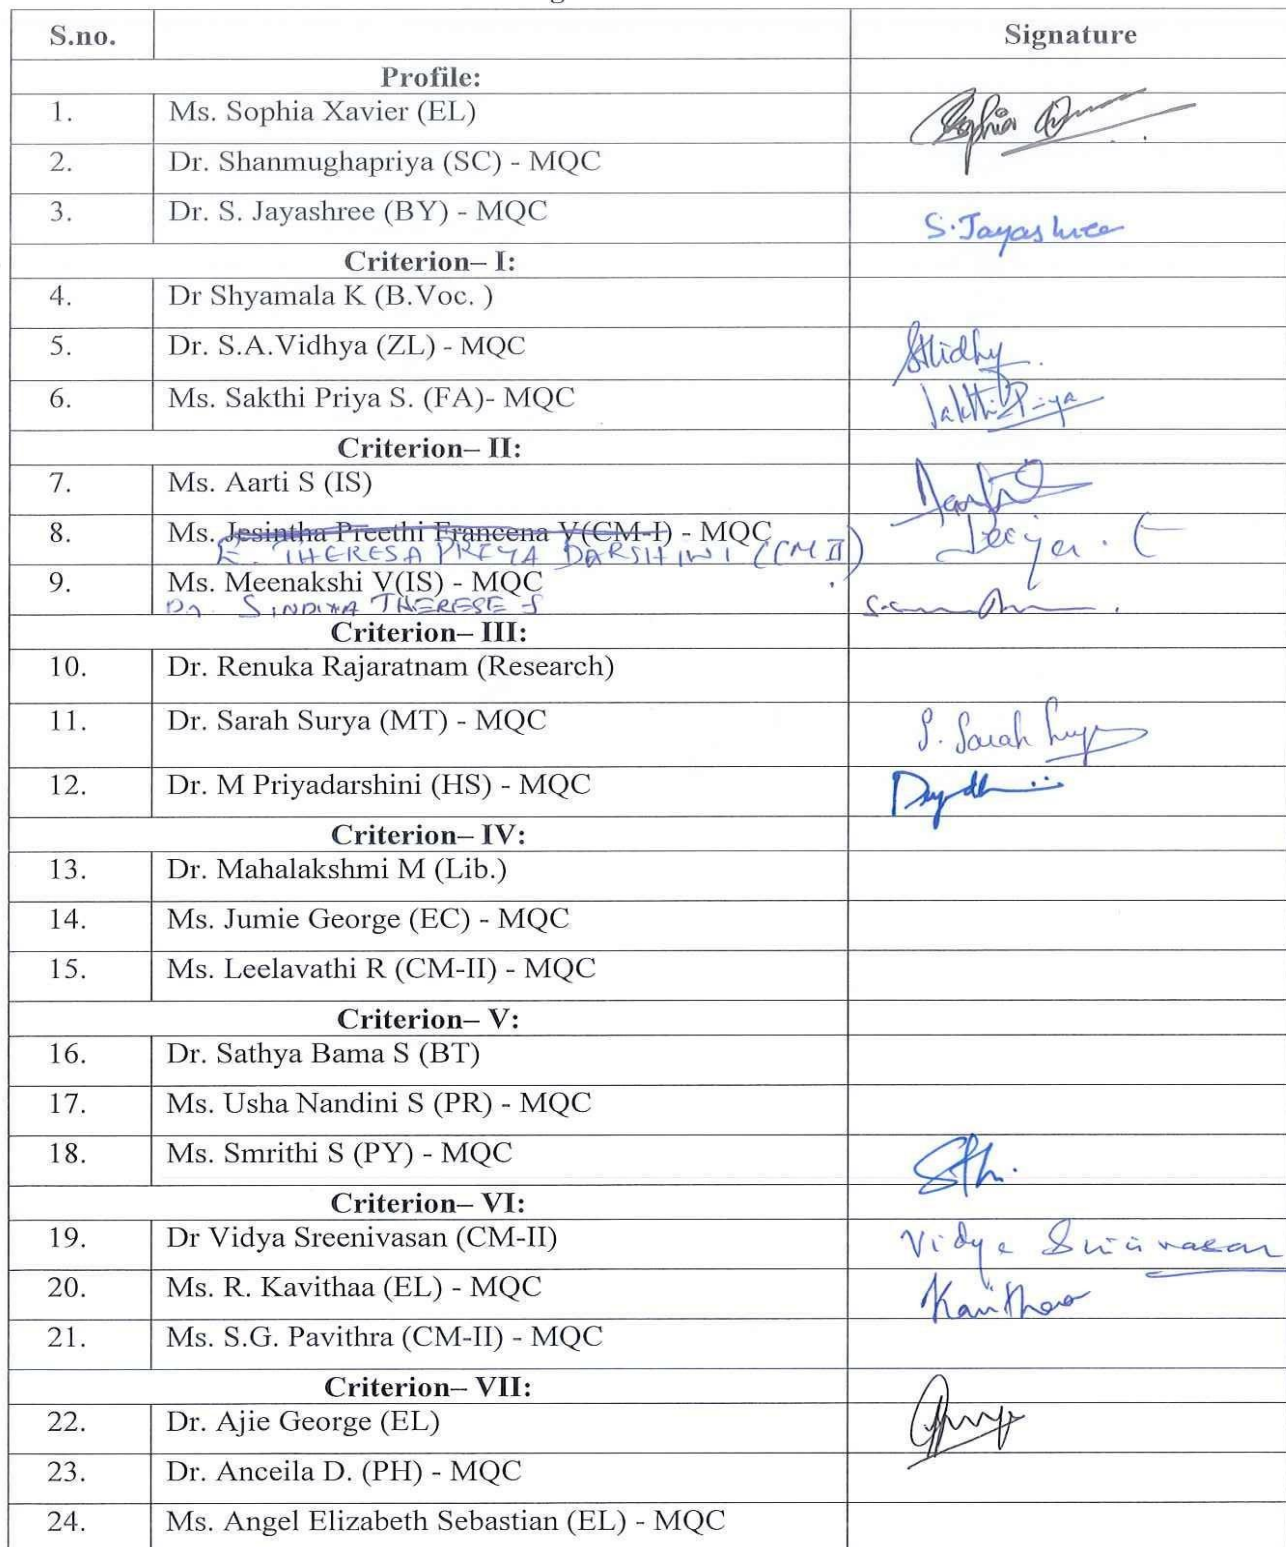 S.no. Signature
Profile:
1. Ms. Sophia Xavier (EL) Sophia
2. Dr. Shanmughapriya (SC) - MQC
3. Dr. S. Jayashree (BY) - MQC S. Jayashree
Criterion– I:
4. Dr Shyamala K (B.Voc. )
5. Dr. S.A.Vidhya (ZL) - MQC
6. Ms. Sakthi Priya S. (FA)- MQC Sakthi Priya
Criterion– II:
7. Ms. Aarti S (IS)
8. Ms. Jesintha Preethi Francena V(CM-I) - MQC
E. THERESA PRIYA DARSHINI (CM II)
9. Ms. Meenakshi V(IS) - MQC
Dr. SINDHYA THERESE S
Criterion– III:
10. Dr. Renuka Rajaratnam (Research)
11. Dr. Sarah Surya (MT) - MQC S. Sarah Surya
12. Dr. M Priyadarshini (HS) - MQC
Criterion– IV:
13. Dr. Mahalakshmi M (Lib.)
14. Ms. Jumie George (EC) - MQC
15. Ms. Leelavathi R (CM-II) - MQC
Criterion– V:
16. Dr. Sathya Bama S (BT)
17. Ms. Usha Nandini S (PR) - MQC
18. Ms. Smrithi S (PY) - MQC
Criterion– VI:
19. Dr Vidya Sreenivasan (CM-II) Vidya
20. Ms. R. Kavithaa (EL) - MQC Kavithaa
21. Ms. S.G. Pavithra (CM-II) - MQC
Criterion– VII:
22. Dr. Ajie George (EL)
23. Dr. Anceila D. (PH) - MQC
24. Ms. Angel Elizabeth Sebastian (EL) - MQC